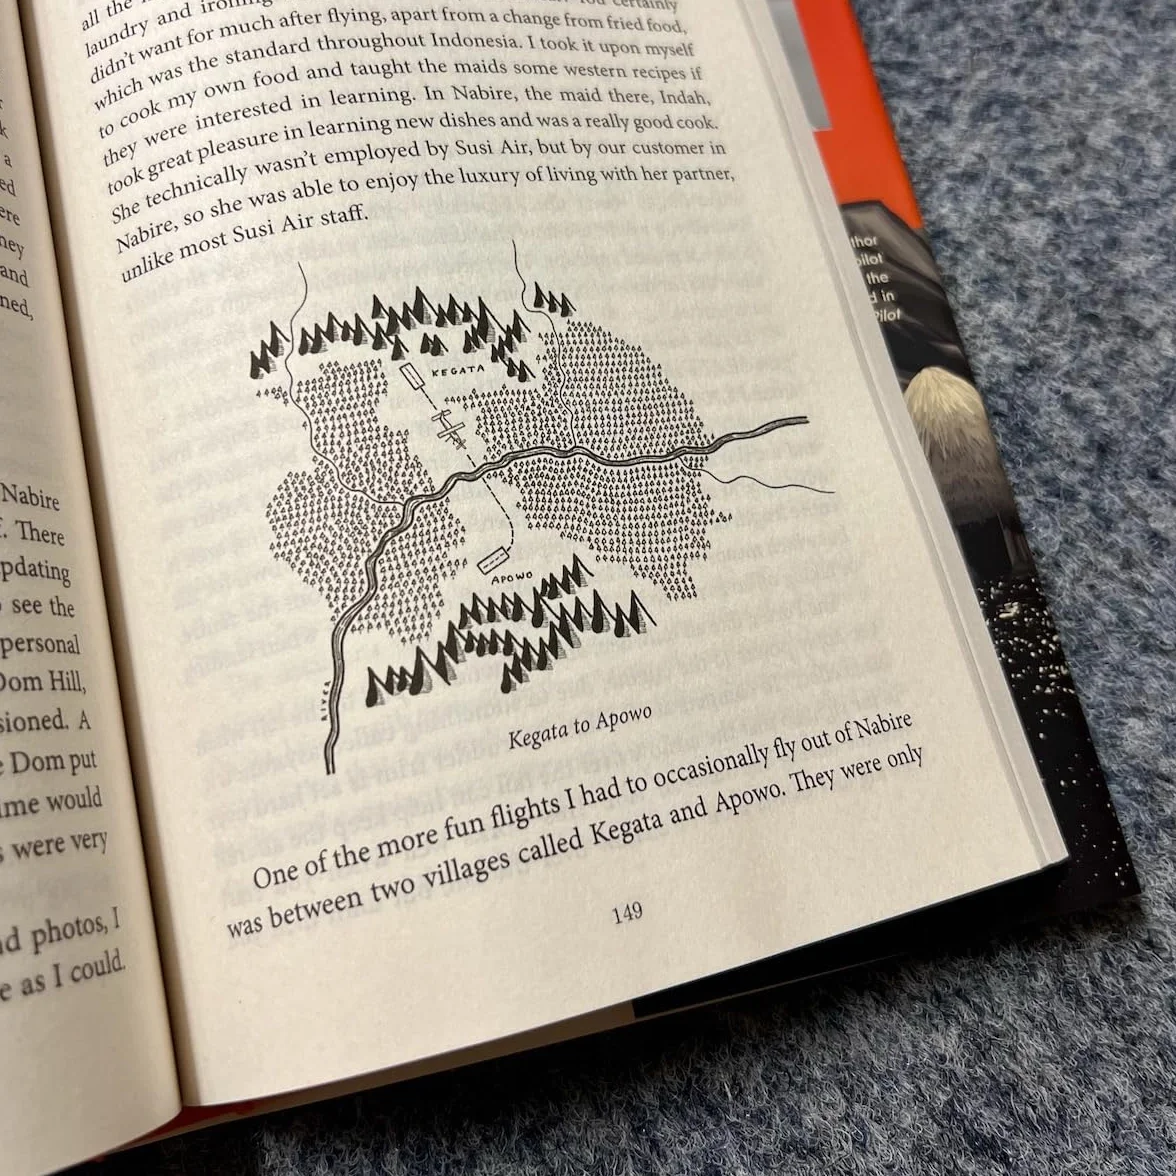 Nabire
There
pdating
see the
personal
Dom Hill,
sioned. A
Dom put
me would
were very
d photos, I
e as I could.
all the
laundry and certainly
didn't want for much after flying, apart from a change from fried food,
which was the standard throughout Indonesia. I took it upon myself
to cook my own food and taught the maids some western recipes if
they were interested in learning. In Nabire, the maid there, Indah,
took great pleasure in learning new dishes and was a really good cook.
She technically wasn't employed by Susi Air, but by our customer in
Nabire, so she was able to enjoy the luxury of living with her partner,
unlike most Susi Air staff.
KEGATA
APOWO
RIVER
Kegata to Apowo
One of the more fun flights I had to occasionally fly out of Nabire
was between two villages called Kegata and Apowo. They were only
149
thor
pilot
the
d in
Pilot